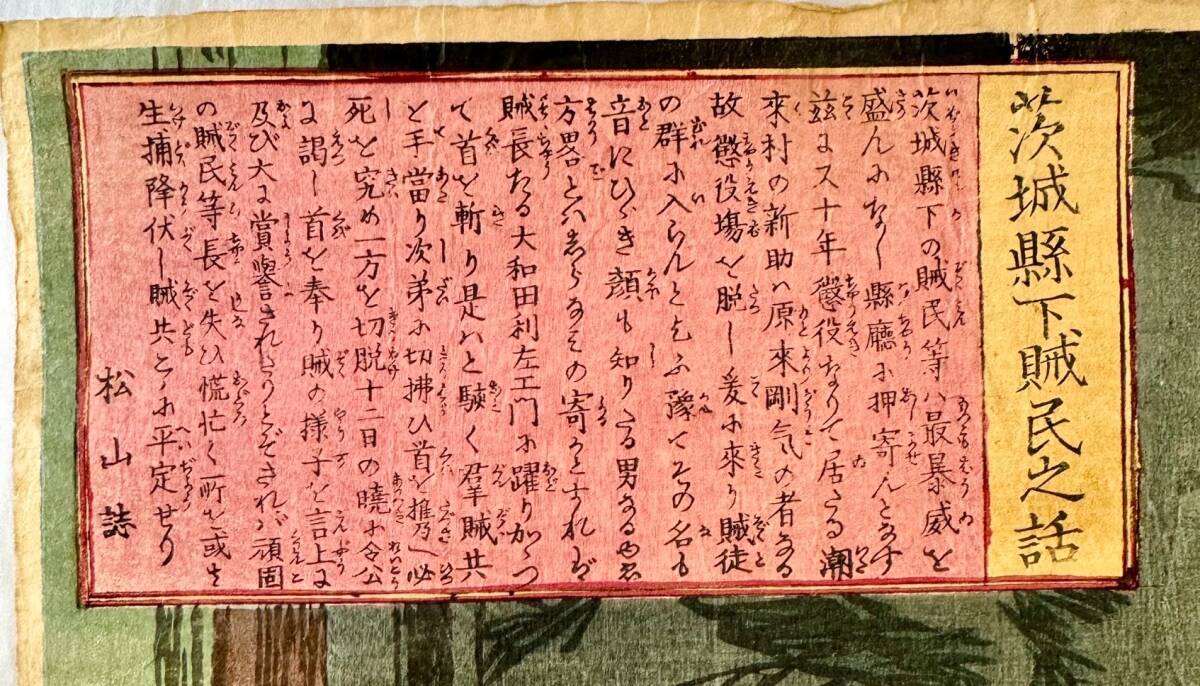 茨城縣下賊民之話
茨城縣下の賊民等ハ最暴威を
盛んふなし縣廳ふ押寄んとなす
茲に十年懲役なりて居たる潮
來村の新助ハ原來剛気の者なる
故懲役場を脱し爰ふ來り賊徒
の群ふ入らんと乞ふ豫てその名も
音にひゞき顔も知りたる男なるゆゑ
方畧とハ志らなその寄るとすれバ
賊長たる大和田利左エ門ふ躍りかゝつ
て首を斬り是ハと駭く羣賊共
と手當り次弟ふ切拂ひ首を携へ必
死を究め一方を切脱十二日の曉ふ令公
に謁し首を奉り賊の様子を言上に
及び大に賞譽されたりとぞされバ頑固
の賊民等長を失ひ慌忙く所を或は
生捕降伏し賊共ふ平定せり
松山誌